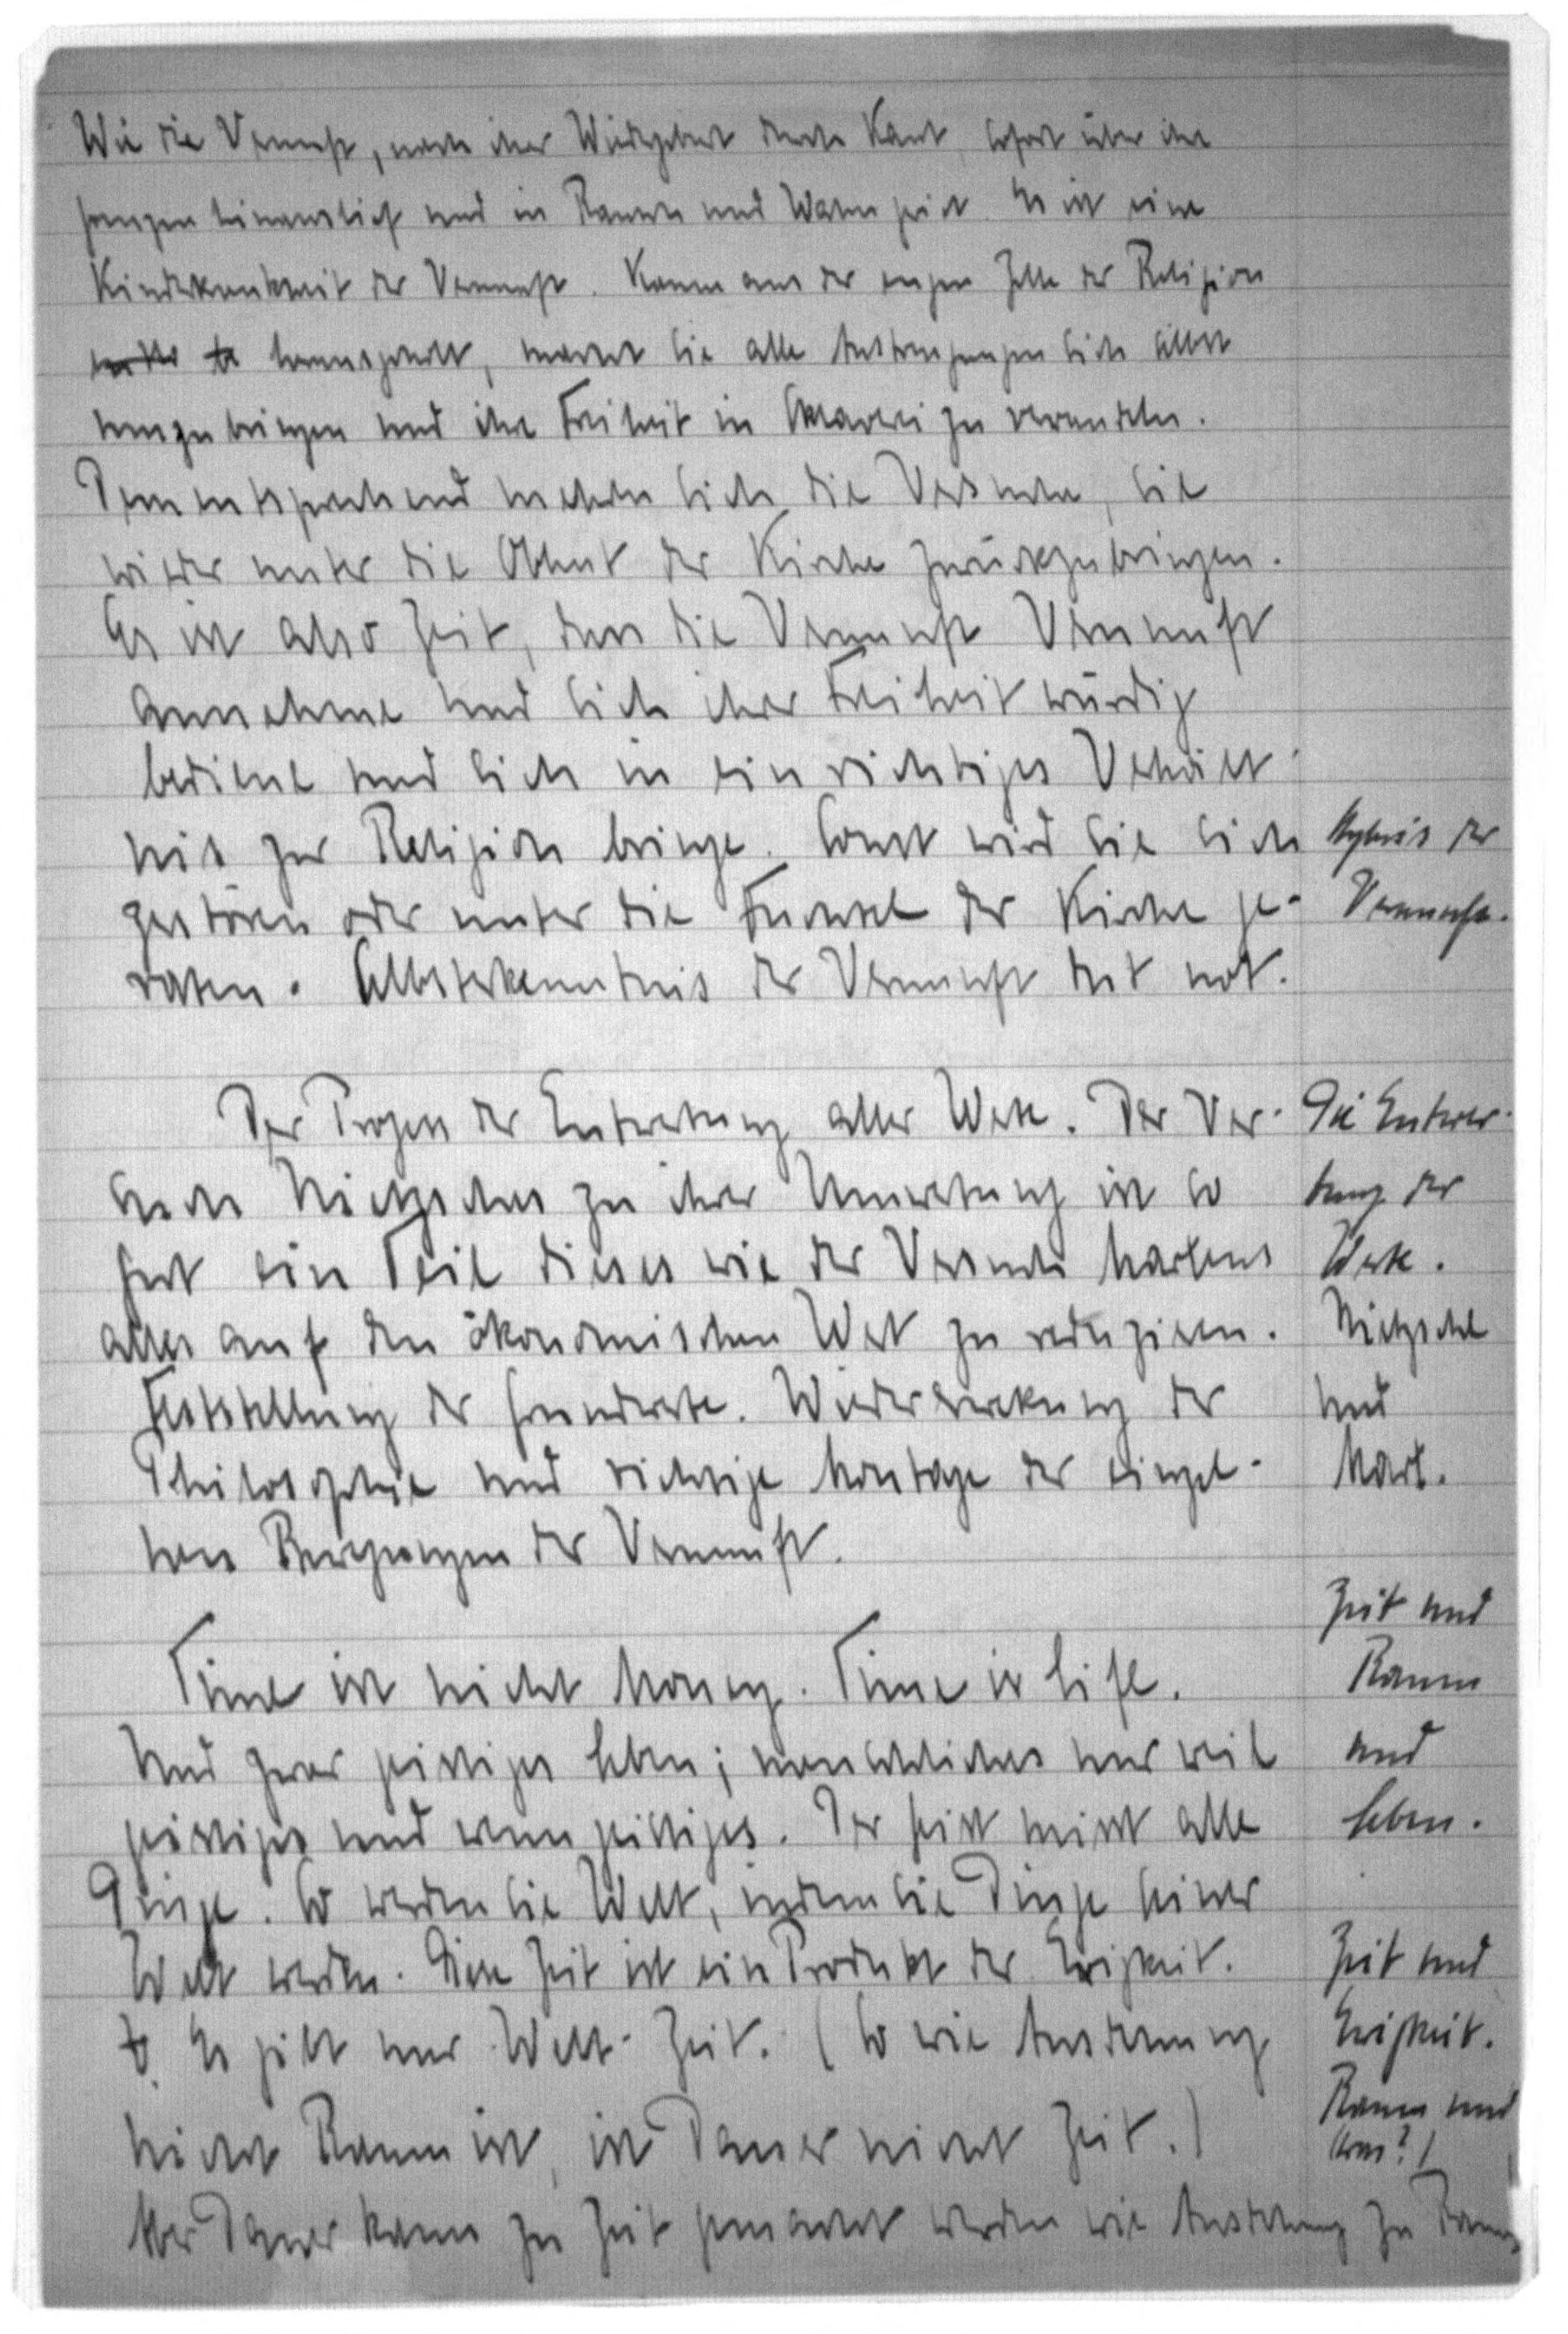 Wie die Vernunft, nach ihrer Wiedergeburt durch Kant, sofort über ihre
Grenzen hinauslief und in Rausch und Wahn geriet. Es ist eine
Kinderkrankheit der Vernunft. Kaum aus der engen Zelle der Religion
herausgeholt, macht sie alle Anstrengungen sich selbst
umzubringen und ihre Freiheit in Sklaverei zu verwandeln.
Dementsprechend mehren sich die Versuche, sie
wieder unter die Obhut der Kirche zurückzubringen.
Es ist also Zeit, dass die Vernunft Vernunft
annehme und sich ihrer Freiheit würdig
bediene und sich in ein richtiges Verhält-
nis zur Religion bringe. Sonst wird sie sich
zerstören oder unter die Fuchtel der Kirche ge-
raten. Selbsterkenntnis der Vernunft tut not.
Hybris der
Vernunft.
Der Prozess der Entwertung aller Werte. Der Ver-
such Nietzsches zu ihrer Umwertung ist so
gut ein Teil dieses wie der Versuch Marxens
alles auf den ökonomischen Wert zu reduzieren.
Feststellung der Grundwerte. Wiedererweckung der
Philosophie und richtige Montage der einzel-
nen Begrenzungen der Vernunft.
Die Entwer-
tung der
Werte.
Nietzsche
und
Marx.
Time ist nicht Money. Time is life.
Und zwar geistiges Leben; menschliches nur weil
geistiges und wenn geistiges. Der Geist misst alle
Dinge. So werden sie Welt, indem sie Dinge seiner
Welt werden. Diese Zeit ist ein Produkt der Ewigkeit.
Es gibt nur Welt-Zeit. (So wie Ausdehnung
nicht Raum ist, ist Dauer nicht Zeit.)
Aber Dauer kann zu Zeit gemacht werden wie Ausdehnung zu Raum
Zeit und
Raum
und
Leben.
Zeit und
Ewigkeit.
Raum und
(was?)